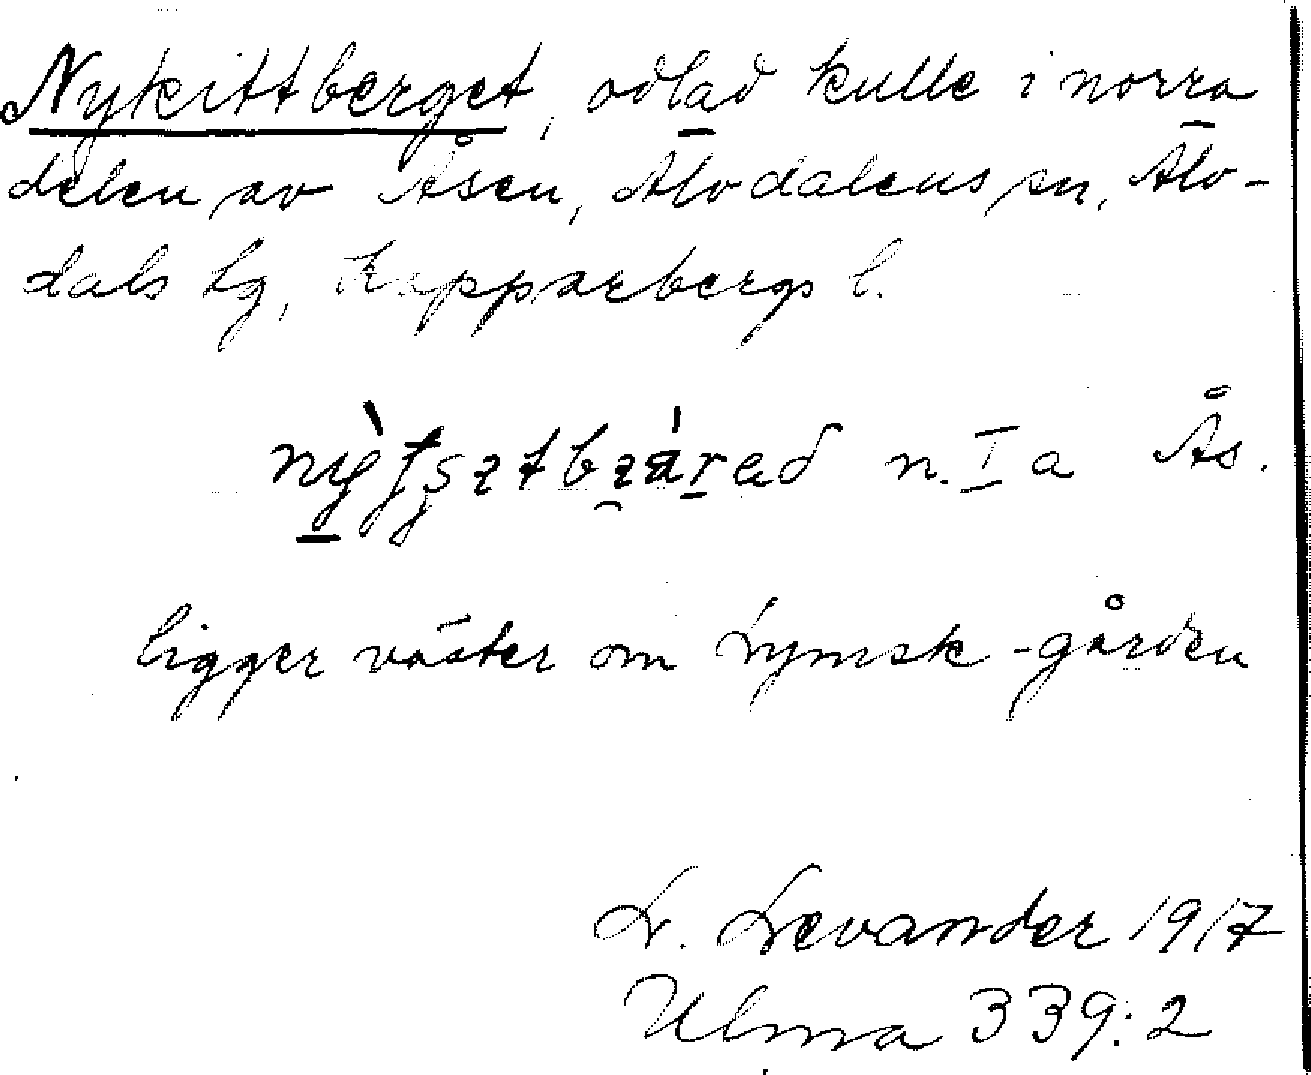 Nykittberget, odlad kulle i norra
delen av Åsen, Älvdalens sn, Älv-
dals tg, Kopparbergs l.
n. I a Ås.
ligger väster om Lymsk-gården
L. Levander 1917
Ulma 339:2